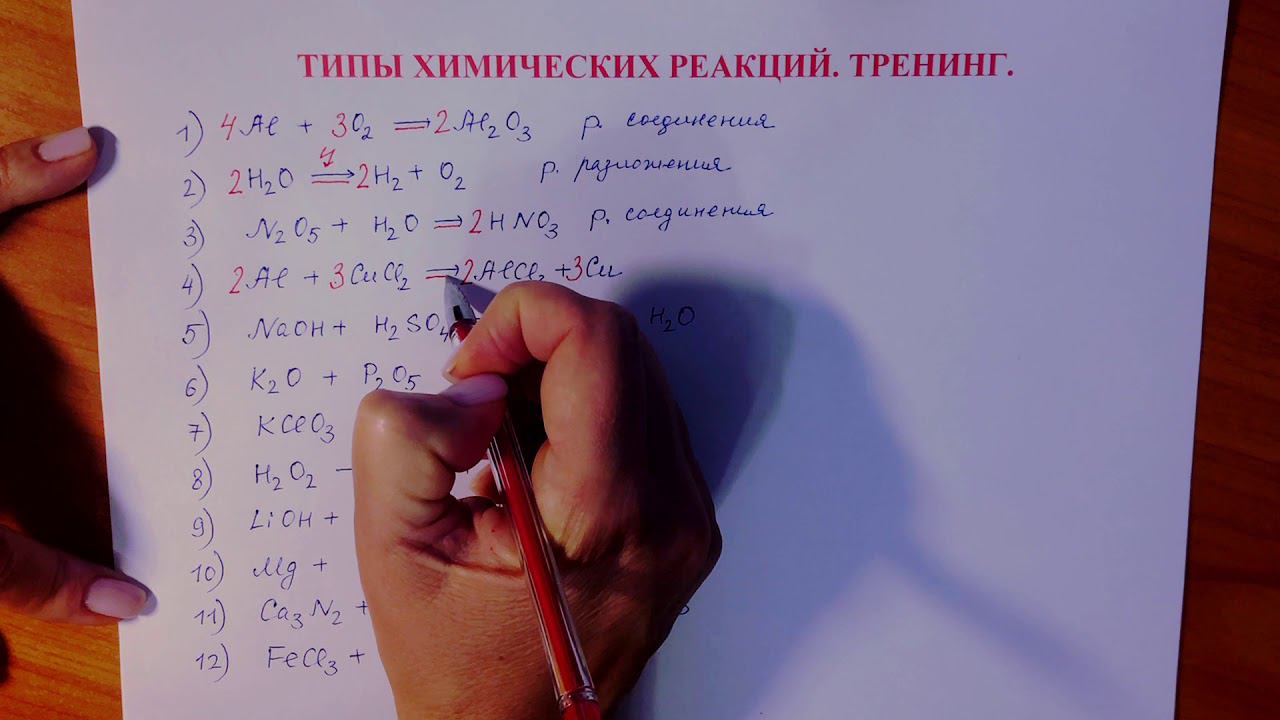 ТИПЫ ХИМИЧЕСКИХ РЕАКЦИЙ. ТРЕНИНГ.
1) 4Al + 3O₂ ⟹ 2Al₂O₃ р. соединения
2) 2H₂O ⟹ 2H₂ + O₂ р. разложения
3) N₂O₅ + H₂O ⟹ 2HNO₃ р. соединения
4) 2Al + 3CuCl₂ ⟹ 2AlCl₃ + 3Cu
5) NaOH + H₂SO₄ H₂O
6) K₂O + P₂O₅
7) KClO₃
8) H₂O₂
9) LiOH +
10) Mg +
11) Ca₃N₂ +
12) FeCl₃ +